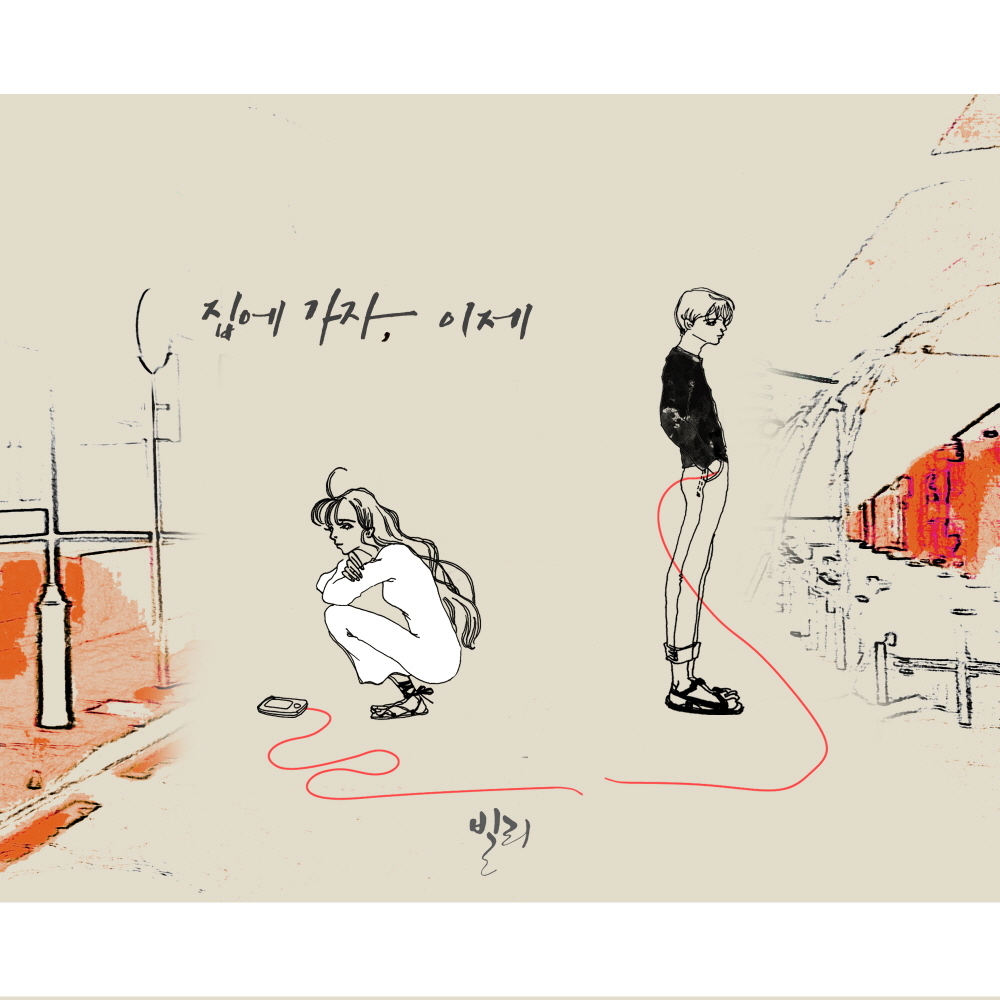 집에 가자, 이제
빌리